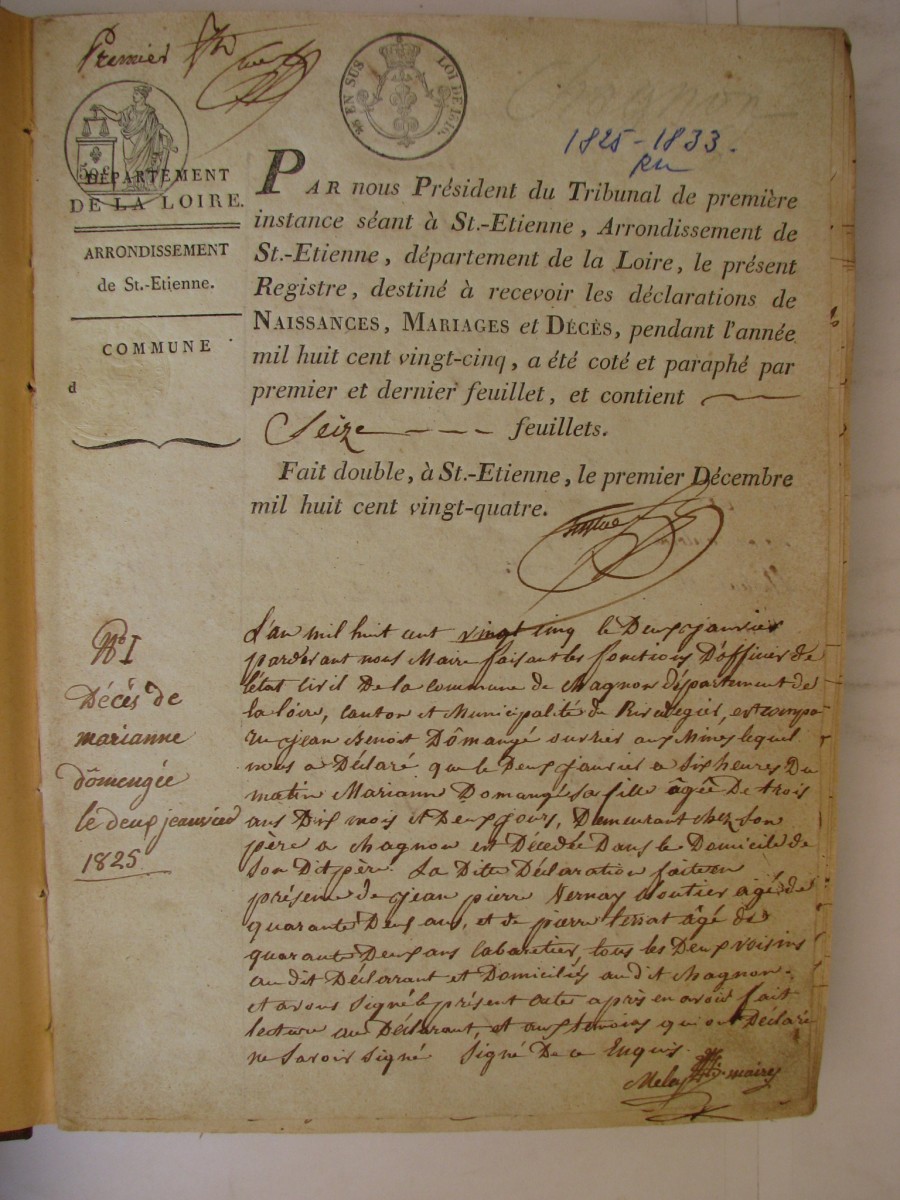 Premier
EN SUS LOI DE 1816.
Chagnon
1825-1833.
50c
DÉPARTEMENT
DE LA LOIRE.
ARRONDISSEMENT
de St.-Etienne.
COMMUNE
d
PAR nous Président du Tribunal de première
instance séant à St.-Etienne, Arrondissement de
St.-Etienne, département de la Loire, le présent
Registre, destiné à recevoir les déclarations de
NAISSANCES, MARIAGES et DÉCÈS, pendant l'année
mil huit cent vingt-cinq, a été coté et paraphé par
premier et dernier feuillet, et contient
Seize feuillets.
Fait double, à St.-Etienne, le premier Décembre
mil huit cent vingt-quatre.
No 1
Décès de
marianne
dômengée
le deux jeanvied
1825
L'an mil huit cent vingt cinq le Deux janvier
pardevant nous Maire faisant les fonctions D'officier de
l'état Civil De la commune de Chagnon département de
la loire, canton et Municipalité de Rivedegier, est compa
ru jean Benoit Dômangé ouvrier aux Mines lequel
nous a Déclaré que le Deux janvier a six heures Du
matin Mariann Domangé sa fille âgée De trois
ans Dix mois et Deux jours, Demeurant chez son
père a Chagnon est Décédée Dans le Domicile de
son Dit père. La Dite Déclaration faite en
présence de jean pierre Vernay Cloutier agé de
quarante Deux ans, et de pierre âgé de
quarante Deux ans Cabaretier, tous les Deux voisins
au dit Déclarant et Domiciliés au dit Chagnon.
et avons signé le présent acte après en avoir fait
lecture au Déclarant, et aux temoins qui ont Déclaré
ne savoir signé signé De ce Enquis.
maire